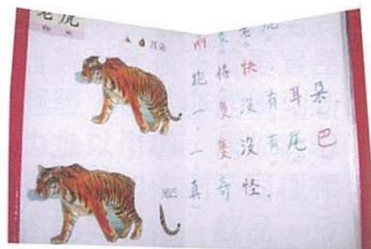 老虎
耳朵
兩隻老虎
跑得快
一隻沒有耳朵
一隻沒有尾巴
尾巴
真奇怪